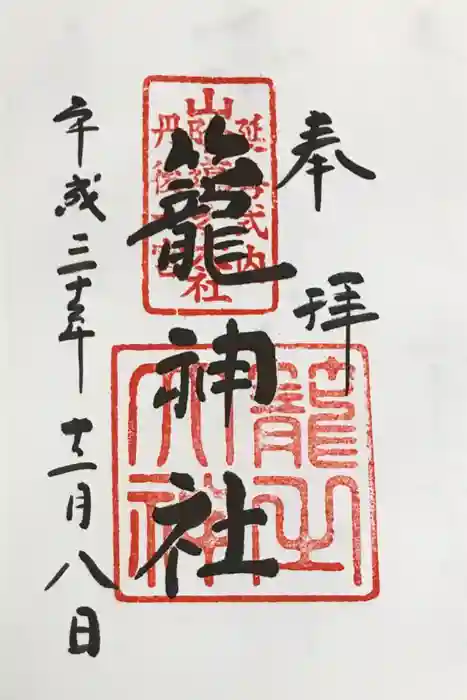 奉拝
延喜式内
山陰道
社
丹後一宮
籠神社
籠之
大神
平成三十年十二月八日